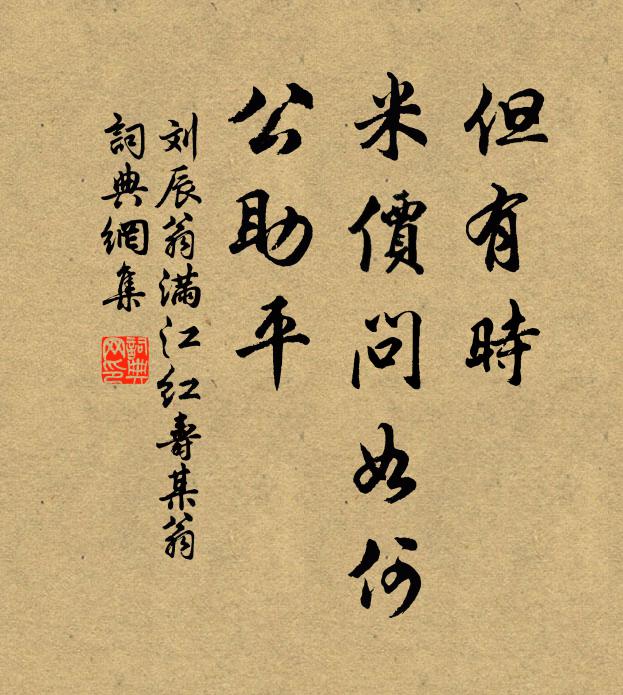 但有時
米價問如何
公助平
刘辰翁满江红壽某翁
詞典網集
詞典网印